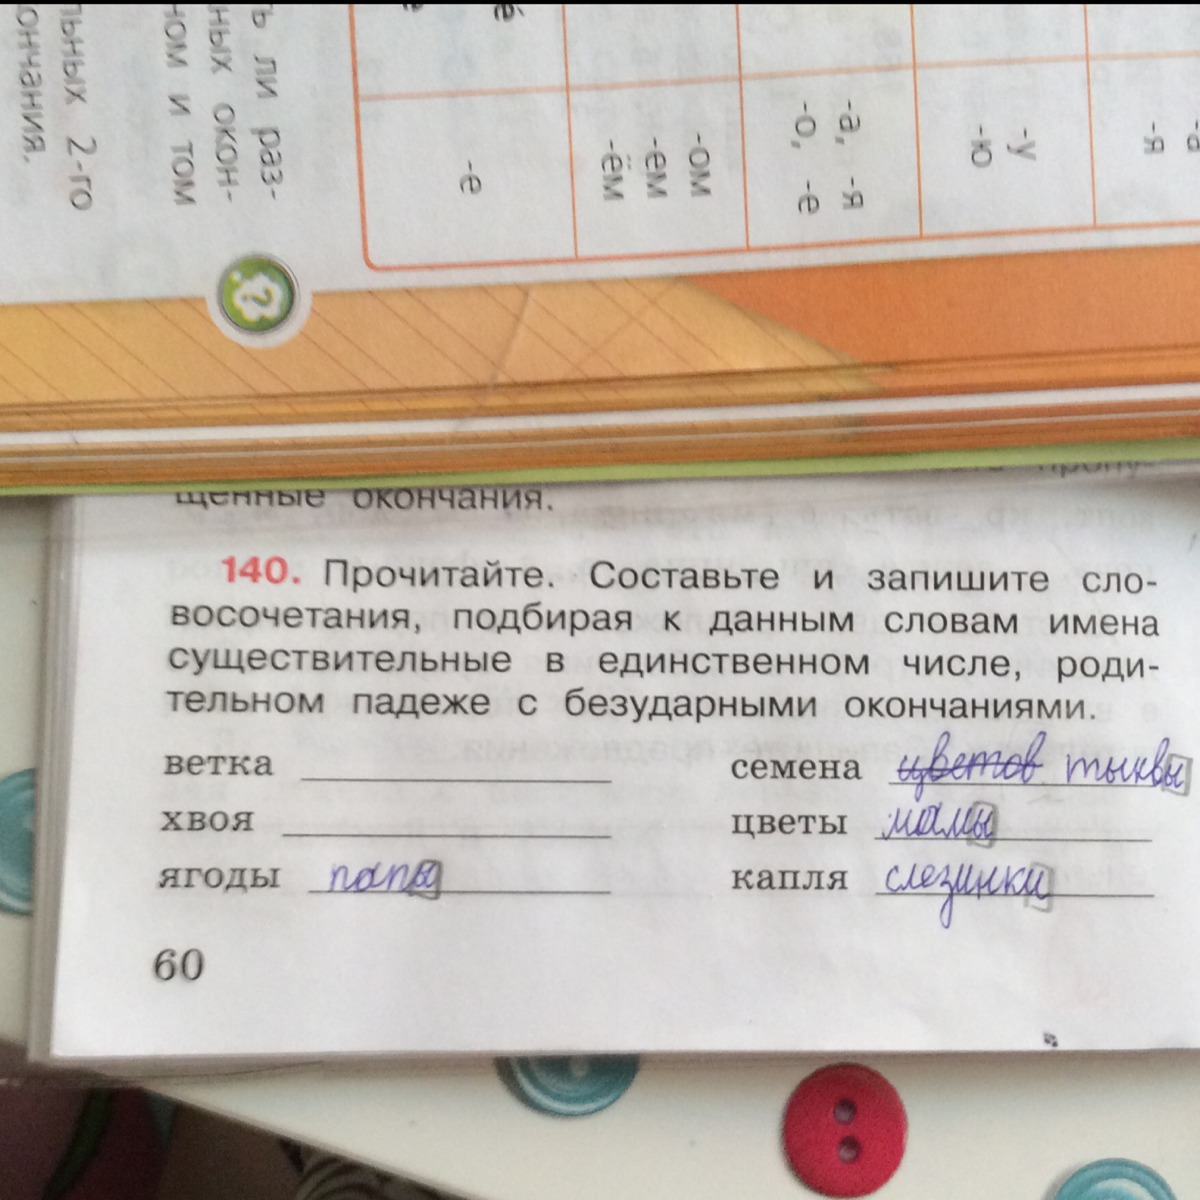 ть ли раз-
ных окон-
ном и том
льных 2-го
ончания.
-е
-ом
-ем
-ём
-а, -я
-о, -е
-у
-ю
-а
-я
?
щенные окончания.
140. Прочитайте. Составьте и запишите сло-
восочетания, подбирая к данным словам имена
существительные в единственном числе, роди-
тельном падеже с безударными окончаниями.
ветка
хвоя
ягоды папы
семена цветов тыквы
цветы мамы
капля слезинки
60